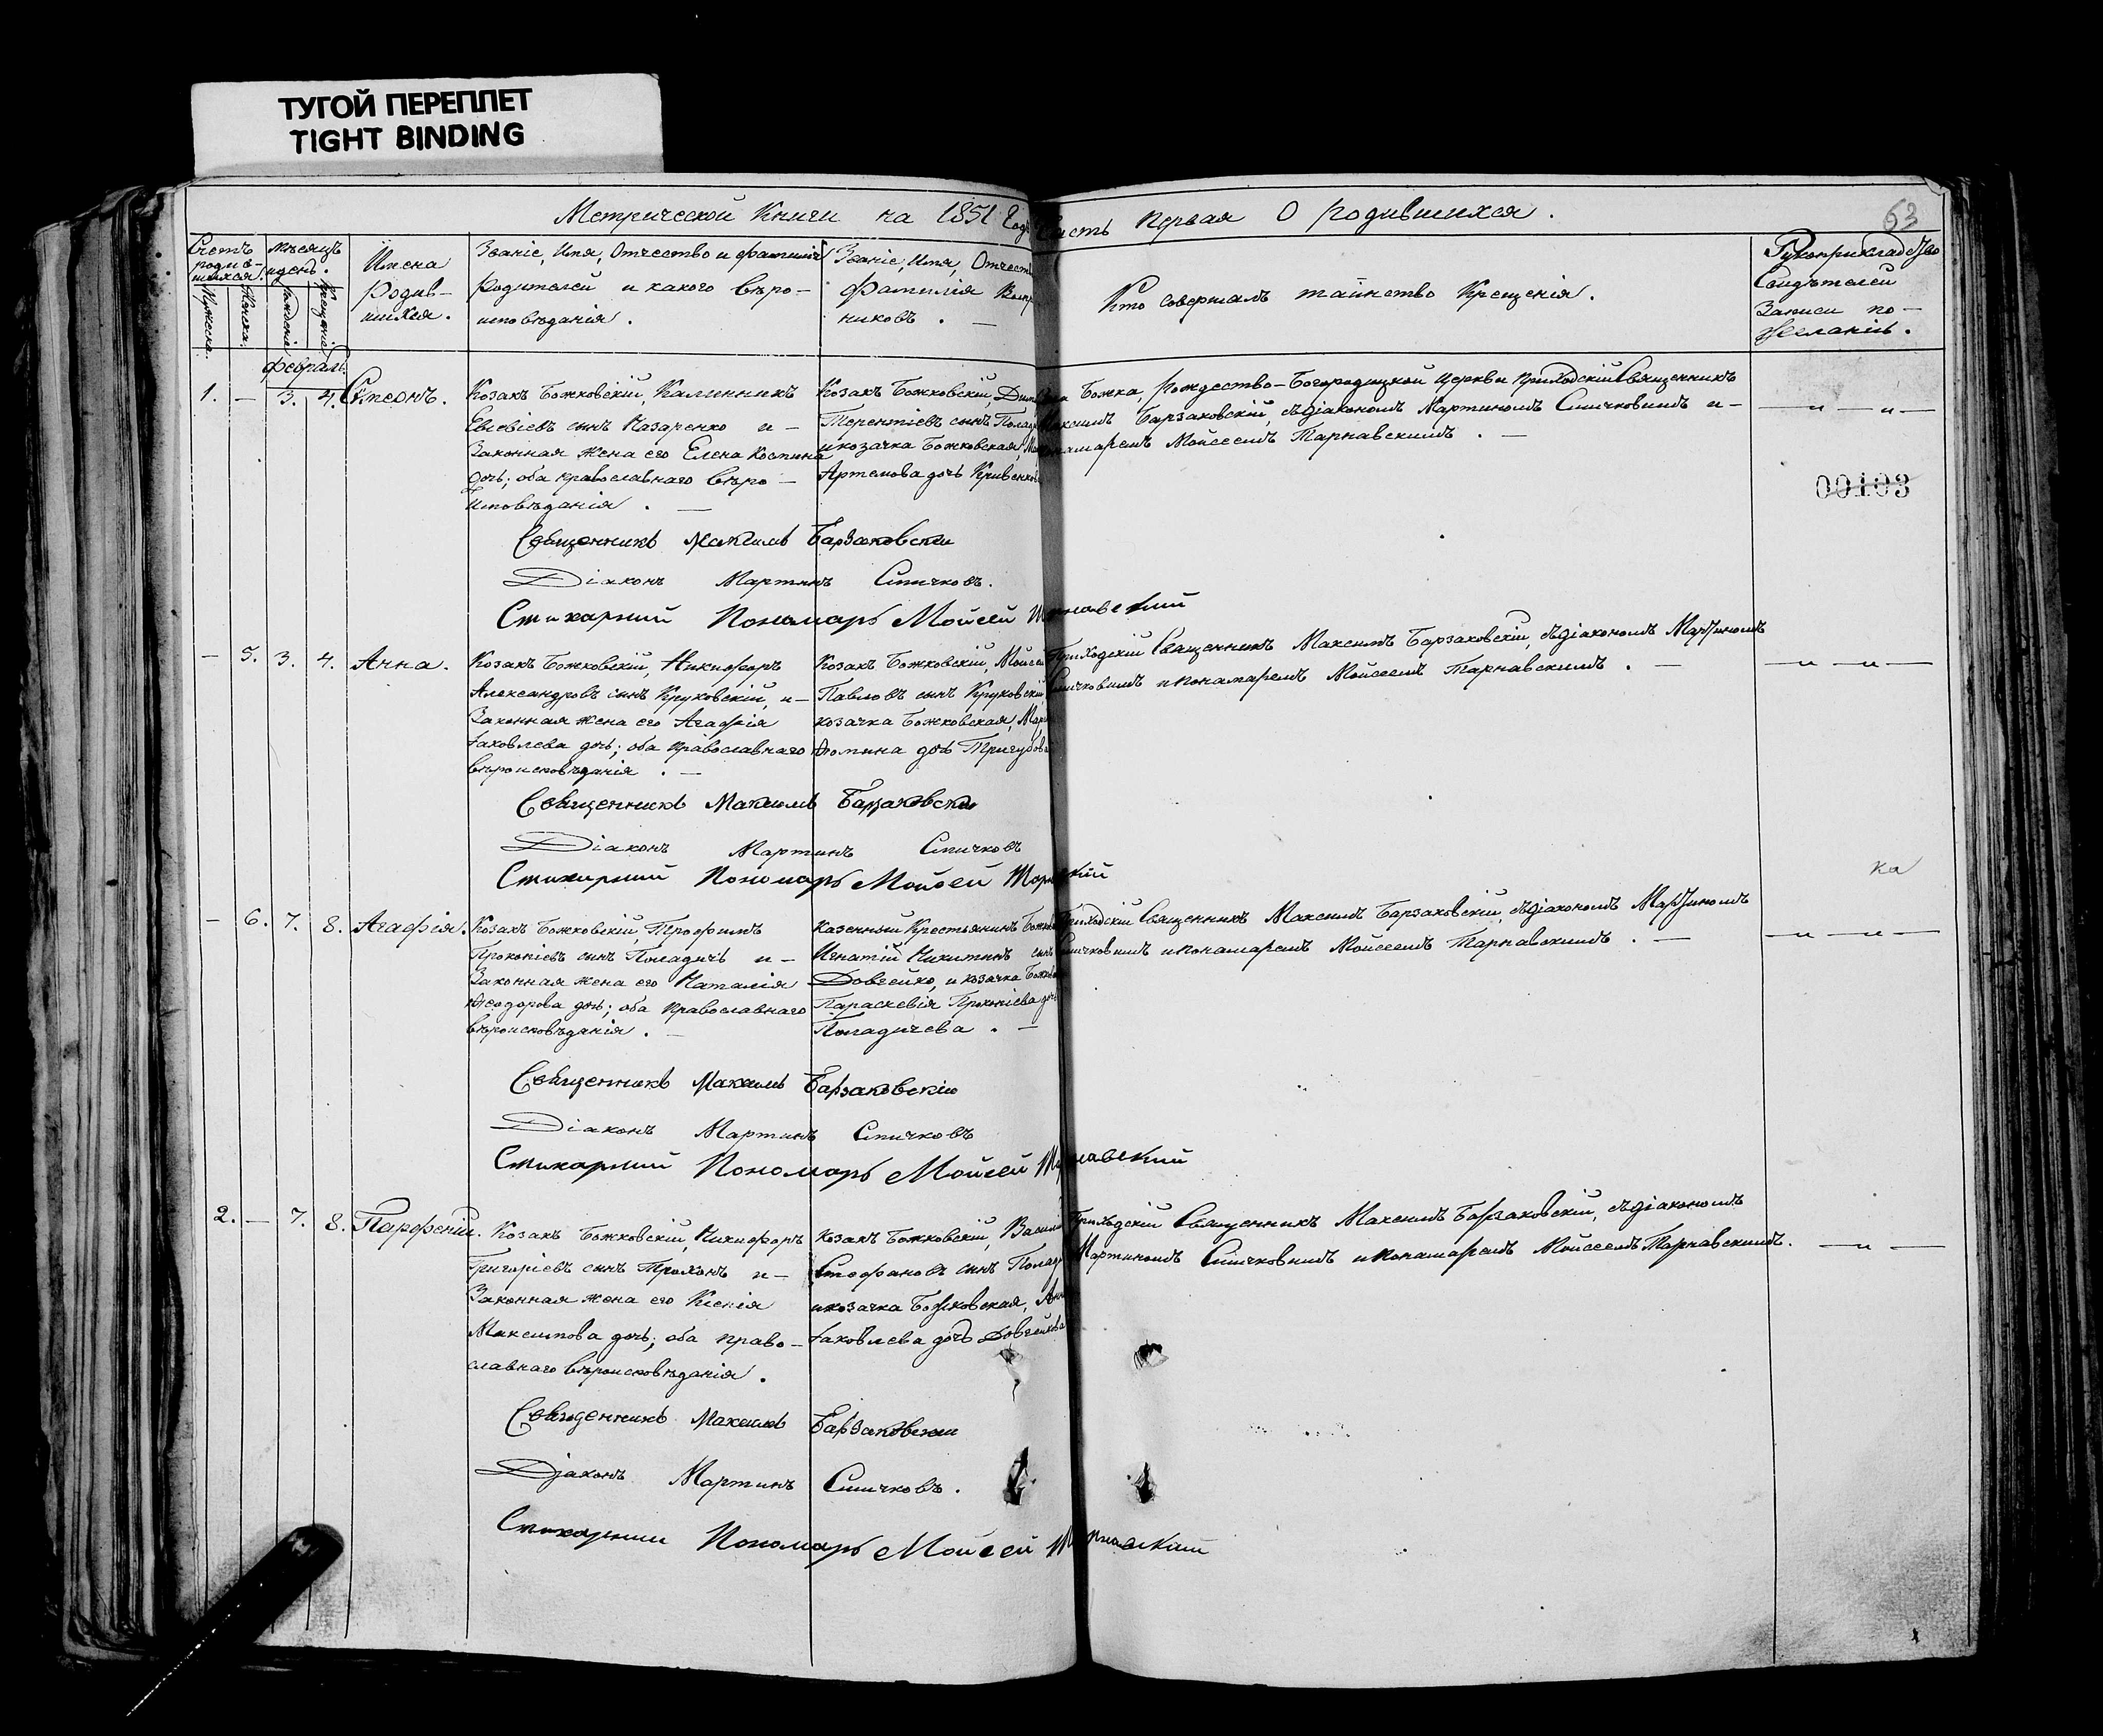 ТУГОЙ ПЕРЕПЛЕТ
TIGHT BINDING
Метрической Книги на 1851 Годъ Часть Первая О родившихся.
63
Счетъ родив-
шихся.
Мужеска.
Женска.
Мѣсяцъ
и день.
рожденія
Крещенія
Имена
Родив-
шихся.
Званіе, Имя, Отчество и фамилія
Родителей и какого вѣро-
исповѣданія.
Званіе, Имя, Отчест
Фамилія
никовъ. —
Кто совершалъ таинство Крещенія.
Рукоприкладство
Свидѣтелей
Записи по-
желанію.
Февраль.
1. — 3. 4. Симеонъ.
Козакъ Божковскій, Калинникъ
Евсевіевъ сынъ Назаренко и —
Законная жена его Елена Костина
дочь; оба православнаго вѣро —
исповѣданія. —
Козакъ Божковскій,
Терентіевъ сынъ
и козачка Божковская,
Артемова дочь
Божка, Рождество-Богородицкой Церкви Приходскій Священникъ
Максимъ Барзаковскій, съ діакономъ Мартиномъ Спичковымъ и —
понамаремъ Мойсеемъ Тарнавскимъ. —
— " — " —
00103
Священникъ Максимъ Барзаковскій
Діаконъ Мартинъ Спичковъ.
Стихарний Пономарь Мойсей Тарнавский
— 5. 3. 4. Анна.
Козакъ Божковскій, Никифоръ
Александровъ сынъ Круковскій, и —
Законная жена его Агафія
Іаковлева дочь; оба православнаго
вѣроисповѣданія. —
Козакъ Божковскій, Мойсей
Павловъ сынъ Круковскій,
козачка Божковская,
Фомина дочь Тригубова
Приходскій Священникъ Максимъ Барзаковскій, съ діакономъ Мартиномъ
Спичковымъ и понамаремъ Мойсеемъ Тарнавскимъ. —
— " — " —
Священникъ Максимъ Барзаковскій
Діаконъ Мартинъ Спичковъ
Стихарний Пономарь Мойсей
ка
— 6. 7. 8. Агафія.
Козакъ Божковскій, Трофимъ
Прокопіевъ сынъ Поладичъ и —
Законная жена его Наталія
Феодорова дочь; оба православнаго
вѣроисповѣданія. —
Казенный Крестьянинъ
Игнатій Никитинъ сынъ
Довгейко, и козачка
Параскевія Прокопіева дочь
Поладичева. —
Приходскій Священникъ Максимъ Барзаковскій, съ діакономъ Мартиномъ
Спичковымъ и понамаремъ Мойсеемъ Тарнавскимъ. —
— " — " —
Священникъ Максимъ Барзаковскій
Діаконъ Мартинъ Спичковъ
Стихарний Пономарь Мойсей Тарнавский
2. — 7. 8. Парфеній.
Козакъ Божковскій, Никифоръ
Григоріевъ сынъ Трохонъ и —
Законная жена его Ксенія
Максимова дочь; оба право —
славнаго вѣроисповѣданія.
Козакъ Божковскій,
Стефановъ сынъ
и козачка Божковская,
Іаковлева дочь Довгейкова
Приходскій Священникъ Максимъ Барзаковскій, съ діакономъ
Мартиномъ Спичковымъ и понамаремъ Мойсеемъ Тарнавскимъ.
— " —
Священникъ Максимъ Барзаковскій
Діаконъ Мартинъ Спичковъ.
Стихарний Пономарь Мойсей Тарнавский